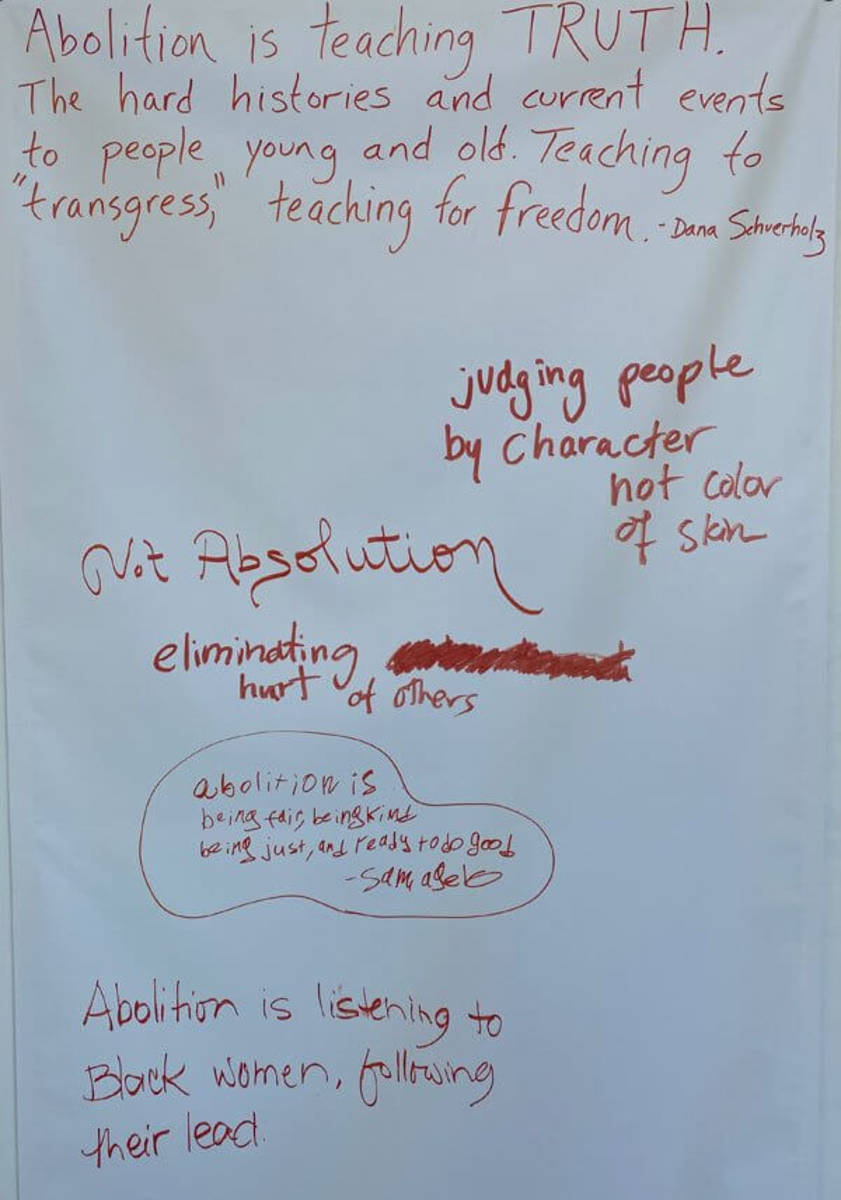 Abolition is teaching TRUTH.
The hard histories and current events
to people young and old. Teaching to
"transgress," teaching for freedom. - Dana Schuerholz
judging people
by Character
not color
of skin
Not Absolution
eliminating
hurt of others
abolition is
being fair, being kind
being just, and ready to do good
- Sam, age
Abolition is listening to
Black women, following
their lead.